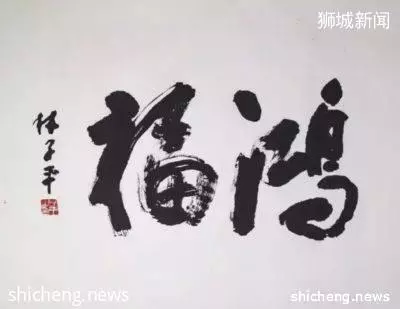 狮城新闻
鸿福
林子平
shicheng.news
shicheng.news